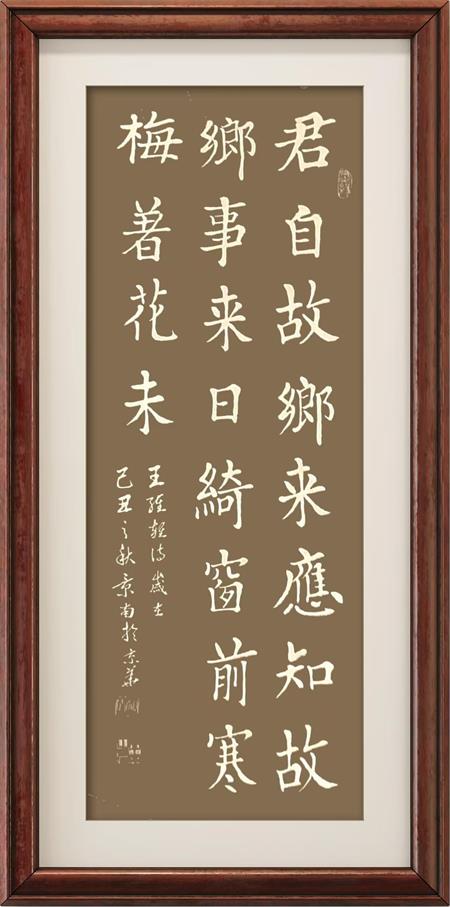 君自故鄉来應知故
鄉事来日綺窗前寒
梅著花未
王維雜詩歲在
己丑之秋京南於京華